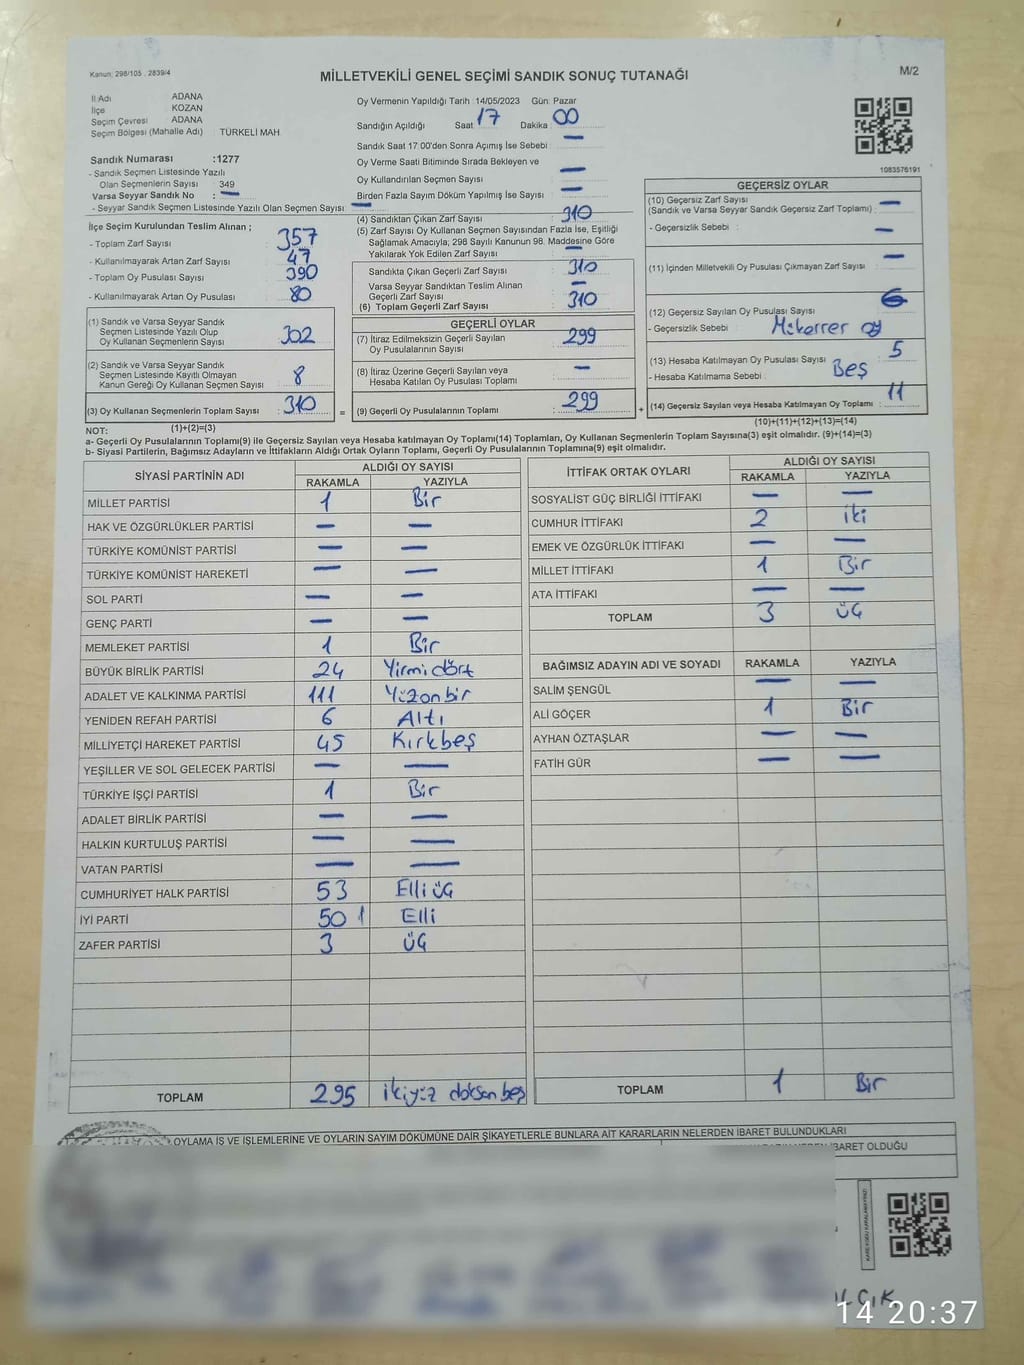 Kanun: 298/105 . 2839/4
MİLLETVEKİLİ GENEL SEÇİMİ SANDIK SONUÇ TUTANAĞI
M/2
İl Adı ADANA
İlçe KOZAN
Seçim Çevresi ADANA
Seçim Bölgesi (Mahalle Adı) TÜRKELİ MAH
Sandık Numarası :1277
- Sandık Seçmen Listesinde Yazılı
Olan Seçmenlerin Sayısı : 349
Varsa Seyyar Sandık No : —
- Seyyar Sandık Seçmen Listesinde Yazılı Olan Seçmen Sayısı: —
Oy Vermenin Yapıldığı Tarih :14/05/2023 Gün: Pazar
Sandığın Açıldığı Saat 17 Dakika 00
Sandık Saat 17:00'den Sonra Açımış İse Sebebi : —
Oy Verme Saati Bitiminde Sırada Bekleyen ve
Oy Kullandırılan Seçmen Sayısı : —
Birden Fazla Sayım Döküm Yapılmış İse Sayısı : —
1083576191
İlçe Seçim Kurulundan Teslim Alınan ;
- Toplam Zarf Sayısı : 357
- Kullanılmayarak Artan Zarf Sayısı : 47
- Toplam Oy Pusulası Sayısı : 390
- Kullanılmayarak Artan Oy Pusulası : 80
(1) Sandık ve Varsa Seyyar Sandık
Seçmen Listesinde Yazılı Olup
Oy Kullanan Seçmenlerin Sayısı : 302
(2) Sandık ve Varsa Seyyar Sandık
Seçmen Listesinde Kayıtlı Olmayan
Kanun Gereği Oy Kullanan Seçmen Sayısı : 8
(3) Oy Kullanan Seçmenlerin Toplam Sayısı : 310
(1)+(2)=(3)
(4) Sandıktan Çıkan Zarf Sayısı : 310
(5) Zarf Sayısı Oy Kullanan Seçmen Sayısından Fazla İse, Eşitliği
Sağlamak Amacıyla; 298 Sayılı Kanunun 98. Maddesine Göre
Yakılarak Yok Edilen Zarf Sayısı : —
Sandıkta Çıkan Geçerli Zarf Sayısı : 310
Varsa Seyyar Sandıktan Teslim Alınan
Geçerli Zarf Sayısı : —
(6) Toplam Geçerli Zarf Sayısı : 310
GEÇERLİ OYLAR
(7) İtiraz Edilmeksizin Geçerli Sayılan
Oy Pusulalarının Sayısı : 299
(8) İtiraz Üzerine Geçerli Sayılan veya
Hesaba Katılan Oy Pusulası Toplamı : —
= (9) Geçerli Oy Pusulalarının Toplamı : 299 +
GEÇERSİZ OYLAR
(10) Geçersiz Zarf Sayısı
(Sandık ve Varsa Seyyar Sandık Geçersiz Zarf Toplamı) : —
- Geçersizlik Sebebi : —
(11) İçinden Milletvekili Oy Pusulası Çıkmayan Zarf Sayısı : —
(12) Geçersiz Sayılan Oy Pusulası Sayısı : 6
- Geçersizlik Sebebi : Mükerrer oy
(13) Hesaba Katılmayan Oy Pusulası Sayısı : 5
- Hesaba Katılmama Sebebi : Beş
(14) Geçersiz Sayılan veya Hesaba Katılmayan Oy Toplamı : 11
(10)+(11)+(12)+(13)=(14)
NOT:
a- Geçerli Oy Pusulalarının Toplamı(9) ile Geçersiz Sayılan veya Hesaba katılmayan Oy Toplamı(14) Toplamları, Oy Kullanan Seçmenlerin Toplam Sayısına(3) eşit olmalıdır. (9)+(14)=(3)
b- Siyasi Partilerin, Bağımsız Adayların ve İttifakların Aldığı Ortak Oyların Toplamı, Geçerli Oy Pusulalarının Toplamına(9) eşit olmalıdır.
SİYASİ PARTİNİN ADI ALDIĞI OY SAYISI
RAKAMLA YAZIYLA
MİLLET PARTİSİ 1 Bir
HAK VE ÖZGÜRLÜKLER PARTİSİ — —
TÜRKİYE KOMÜNİST PARTİSİ — —
TÜRKİYE KOMÜNİST HAREKETİ — —
SOL PARTİ — —
GENÇ PARTİ — —
MEMLEKET PARTİSİ 1 Bir
BÜYÜK BİRLİK PARTİSİ 24 Yirmi dört
ADALET VE KALKINMA PARTİSİ 111 Yüzonbir
YENİDEN REFAH PARTİSİ 6 Altı
MİLLİYETÇİ HAREKET PARTİSİ 45 Kırkbeş
YEŞİLLER VE SOL GELECEK PARTİSİ — —
TÜRKİYE İŞÇİ PARTİSİ 1 Bir
ADALET BİRLİK PARTİSİ — —
HALKIN KURTULUŞ PARTİSİ — —
VATAN PARTİSİ — —
CUMHURİYET HALK PARTİSİ 53 Elli üç
İYİ PARTİ 50 Elli
ZAFER PARTİSİ 3 üç
TOPLAM 295 ikiyüz doksan beş
İTTİFAK ORTAK OYLARI ALDIĞI OY SAYISI
RAKAMLA YAZIYLA
SOSYALİST GÜÇ BİRLİĞİ İTTİFAKI — —
CUMHUR İTTİFAKI 2 iki
EMEK VE ÖZGÜRLÜK İTTİFAKI — —
MİLLET İTTİFAKI 1 Bir
ATA İTTİFAKI — —
TOPLAM 3 üç
BAĞIMSIZ ADAYIN ADI VE SOYADI RAKAMLA YAZIYLA
SALİM ŞENGÜL — —
ALİ GÖÇER 1 Bir
AYHAN ÖZTAŞLAR — —
FATİH GÜR — —
TOPLAM 1 Bir
OYLAMA İŞ VE İŞLEMLERİNE VE OYLARIN SAYIM DÖKÜMÜNE DAİR ŞİKAYETLERLE BUNLARA AİT KARARLARIN NELERDEN İBARET BULUNDUKLARI
İBARET OLDUĞU
14 20:37